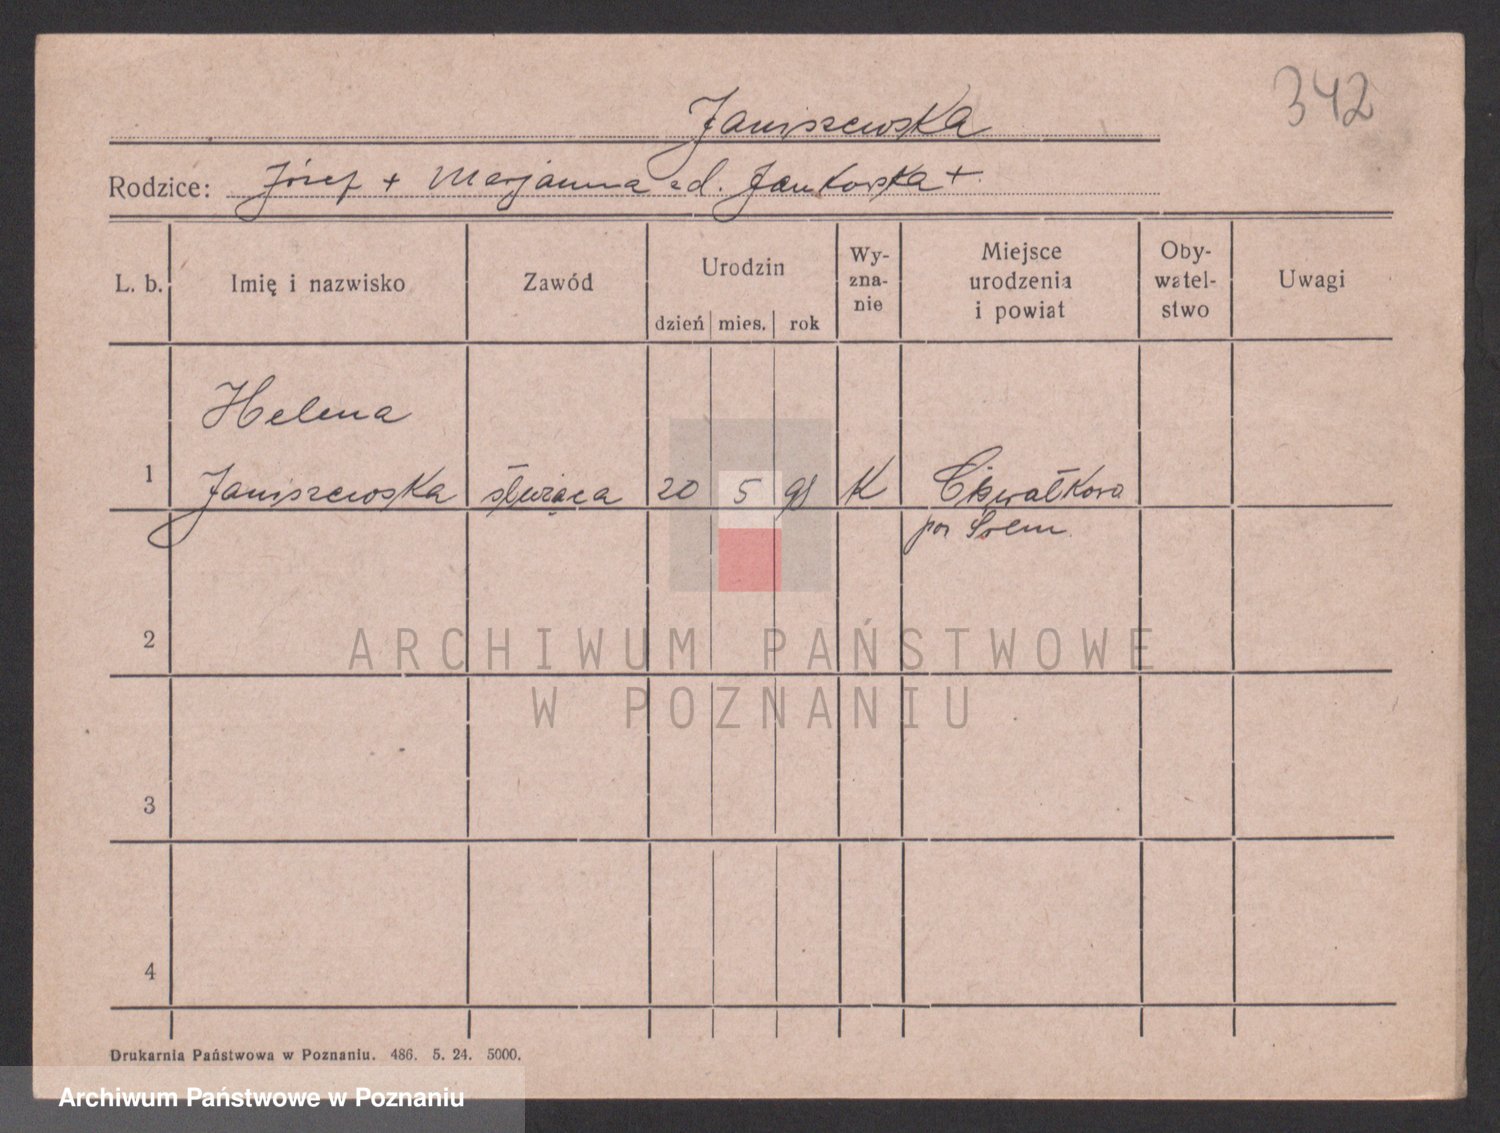 342
Janiszewska
Rodzice: Józef + Marjanna zd. Jankowska +
L. b. Imię i nazwisko Zawód Urodzin dzień mies. rok Wy- zna- nie Miejsce urodzenia i powiat Oby- watel- stwo Uwagi
Helena
1 Janiszewska służąca 20 5 98 K Chwałkowo
pow Śrem
2
ARCHIWUM PAŃSTWOWE
W POZNANIU
3
4
Drukarnia Państwowa w Poznaniu. 486. 5. 24. 5000.
Archiwum Państwowe w Poznaniu